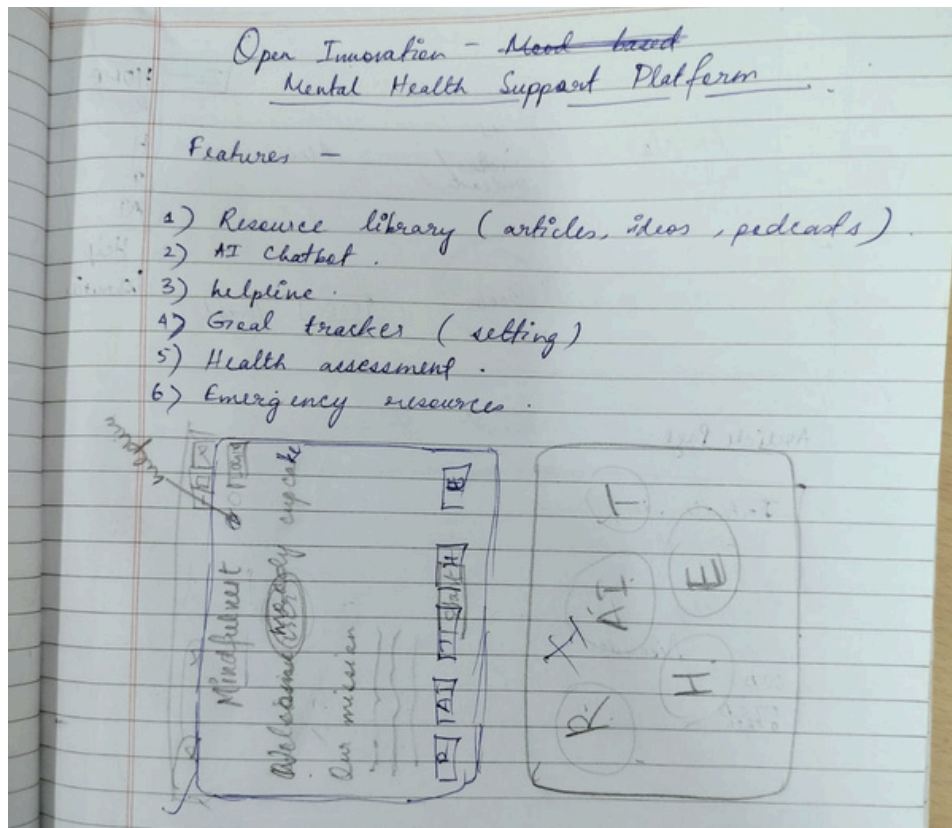 Open Innovation - Mood based
Mental Health Support Platform
Features -
1) Resource library (articles, ideos, podcasts).
2) AI Chatbot.
3) helpline.
4) Goal tracker (setting)
5) Health assessment.
6) Emergency resources.
helpline
Mindfulness
Welcome moody cupcake
Our mission
R AI T H E
R AI T
H E